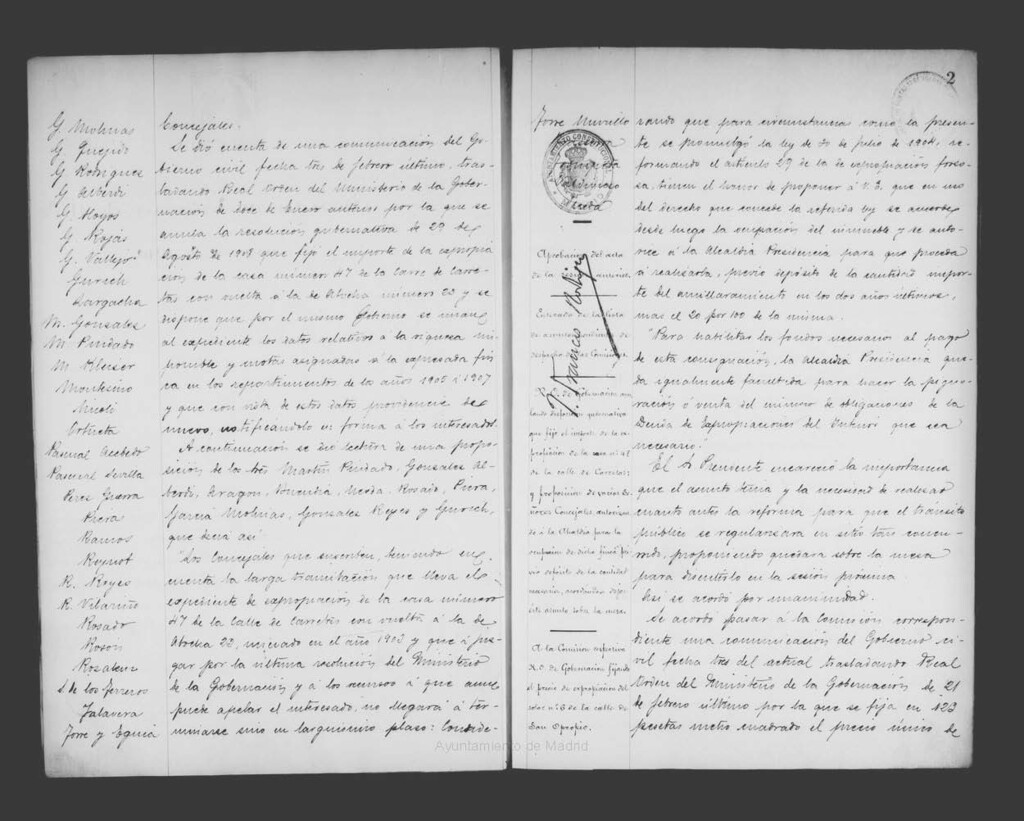 G. Molinas
G. Quejido
G. Rodriguez
G. Alberdi
G. Hoyos
G. Rojas
G. Vallejo
Gurich
Largacha
M. Gonzalez
M. Pindado
M. Kleiser
Montesino
Nicoli
Ortueta
Pascual Acebedo
Pascual Sevilla
Perez Guerra
Piera
Ramos
Reynot
R. Reyes
R. Vilariño
Rosado
Rosón
Rozalem
S. de los Terreros
Talavera
Torre y Eguia
Concejales.
Se dió cuenta de una comunicación del Go-
bierno civil fecha tres de febrero último, tras-
ladando Real Orden del Ministerio de la Gober-
nación de doce de Enero anterior por la que se
anula la resolución gubernativa de 29 de
Agosto de 1908 que fijó el importe de la expropia
ción de la casa número 47 de la Carre de Carre-
tas con vuelta á la de Atocha número 23 y se
dispone que por el mismo Gobierno se unan
al expediente los datos relativos á la riqueza im-
ponible y cuotas asignadas á la expresada fin
ca en los repartimientos de los años 1905 á 1907
y que con vista de estos datos providencie de
nuevo, notificándolo en forma á los interesados.
A continuación se dió lectura de una propo-
sición de los Sres Martín Pindado, Gonzalez Al-
berdi, Aragon, Rosado, Piera,
García Molinas, Gonzalez Hoyos y Gurich,
que decía así
"Los Concejales que suscriben, teniendo en
cuenta la larga tramitación que lleva el
expediente de expropiación de la casa número
47 de la Calle de Carretas con vuelta á la de
Atocha 23, iniciado en el año 1903 y que á pe-
sar por la última resolución del Ministerio
de la Gobernación y á los recursos á que aun
puede apelar el interesado, no llegará á ter-
minarse sino en larguísimo plazo: Conside-
2
Torre Murillo
AYUNTAMIENTO CONSTITUCIONAL
Aprobación del acta
de la sesión anterior.
Enterado de la lista
de asuntos
despacho de las Comisiones.
R. O. de Gobernación anu-
lando resolución gubernativa
que fijó el importe de la ex-
propiación de la casa nº 47
de la calle de Carretas;
y proposición de varios Se-
ñores Concejales, autorizan-
do á la Alcaldía para la
ocupación de dicha finca pre
vio depósito de la cantidad
necesaria, acordandose
este asunto sobre la mesa.
A la Comisión respectiva
R. O. de Gobernación fijando
el precio de expropiación del
solar nº 3 de la calle de
San Opropio.
P. Francisco
rando que para circunstancias como la presen-
te se promulgó la ley de 30 de Julio de 1904, re-
formando el artículo 29 de la de expropiación forzo-
sa, tienen el honor de proponer á V. E. que en uso
del derecho que concede la referida ley se acuerde
desde luego la ocupación del inmueble y se auto-
rice á la Alcaldia Presidencia para que proceda
á realizarla, previo depósito de la cantidad impor-
te del amillaramiento en los dos años últimos,
mas el 20 por 100 de la misma.
"Para habilitar los fondos necesarios al pago
de esta consignación, la Alcaldia Presidencia que-
da igualmente facultada para hacer la pigno-
ración ó venta del número de obligaciones de la
Deuda de Expropiaciones del Interior que sea
necesario."
El Sr. Presidente encareció la importancia
que el asunto tenia y la necesidad de realizar
cuanto antes la reforma para que el tránsito
público se regularizara en sitio tan concu-
rrido, proponiendo quedara sobre la mesa
para discutirlo en la sesión próxima.
Así se acordó por unanimidad.
Se acordo pasar á la Comisión correspon-
diente una comunicación del Gobierno ci-
vil fecha tres del actual trasladando Real
Orden del Ministerio de la Gobernación de 21
de febrero último por la que se fija en 123
pesetas metro cuadrado el precio único de
Ayuntamiento de Madrid